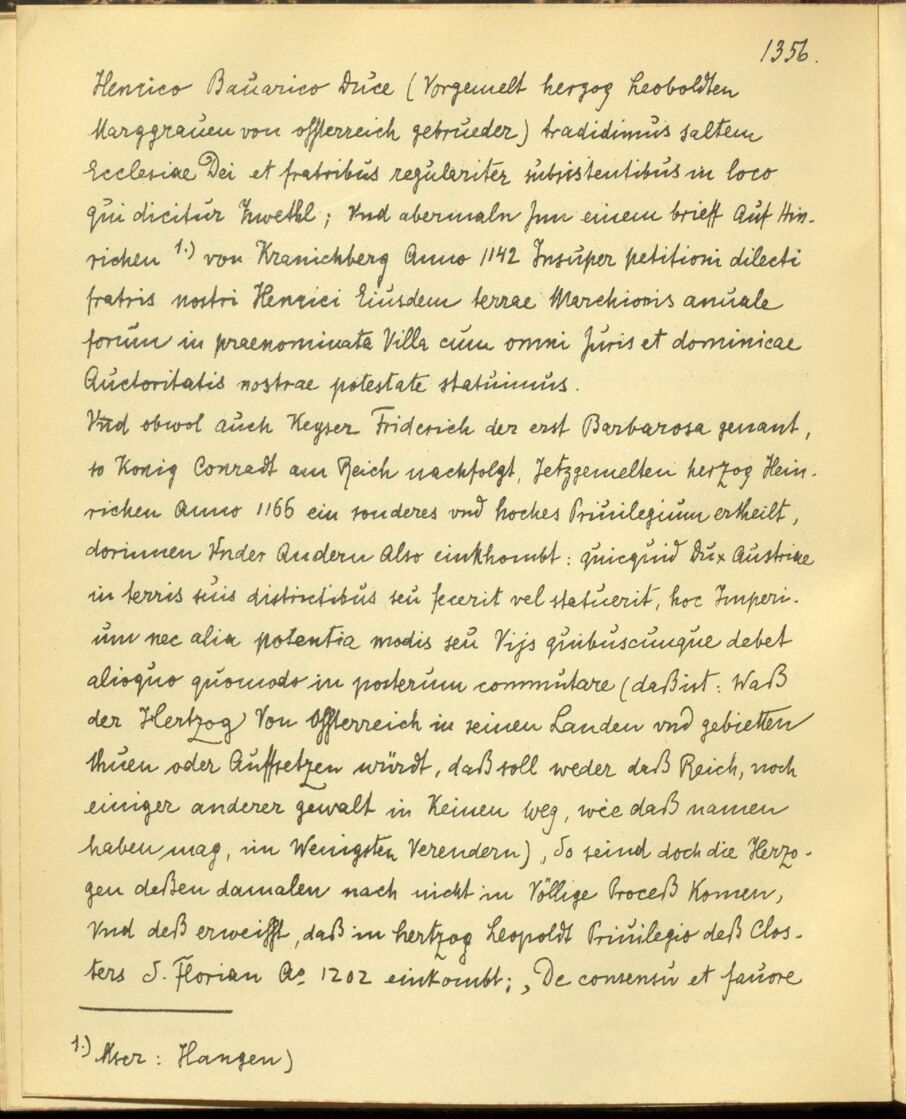 1356.
Henrico Bauarico Duce (Vorgemelt herzog Leoboldten
Marggrauen von össterreich gebrueder) tradidimus saltem
Ecclesiae Dei et fratribus regulariter subsistentibus in loco
qui dicitur Zwethl; Vnd abermaln Jnn einem brieff Auf Hin-
richen 1.) von Kranichberg Anno 1142 Insuper petitioni dilecti
fratris nostri Henrici Eiusdem terrae Marchionis anuale
forum in praenominata Villa cum omni Juris et dominicae
Auctoritatis nostrae potestate statuimus.
Vnd obwol auch Keyser Friderich der erst Barbarosa genant,
so Konig Conradt am Reich nachfolgt, Jetzgemelten herzog Hein-
richen Anno 1166 ein sonderes vnd hoches Priuilegium ertheilt,
dorinnen Vnder Andern Also einkhombt: quicquid Dux Austriae
in terris suis districtibus seu fecerit vel statuerit, hoc Imperi-
um nec alia potentia modis seu Vijs quibuscunque debet
alioquo quomodo in posterum commutare (daß ist: Waß
der Hertzog Von össterreich in seinen Landen vnd gebietten
thuen oder Auffsetzen würdt, daß soll weder daß Reich, noch
einiger anderer gewalt in Keinen weg, wie daß namen
haben mag, im Wenigsten Verendern), So seind doch die Herzo-
gen deßen damalen nach nicht in Völlige Proceß Komen,
Vnd deß erweisst, daß in hertzog Leopoldt Priuilegio deß Clos-
ters S. Florian Ao. 1202 einkombt; „De consensu et fauore
1.) Mscr: Hangen)